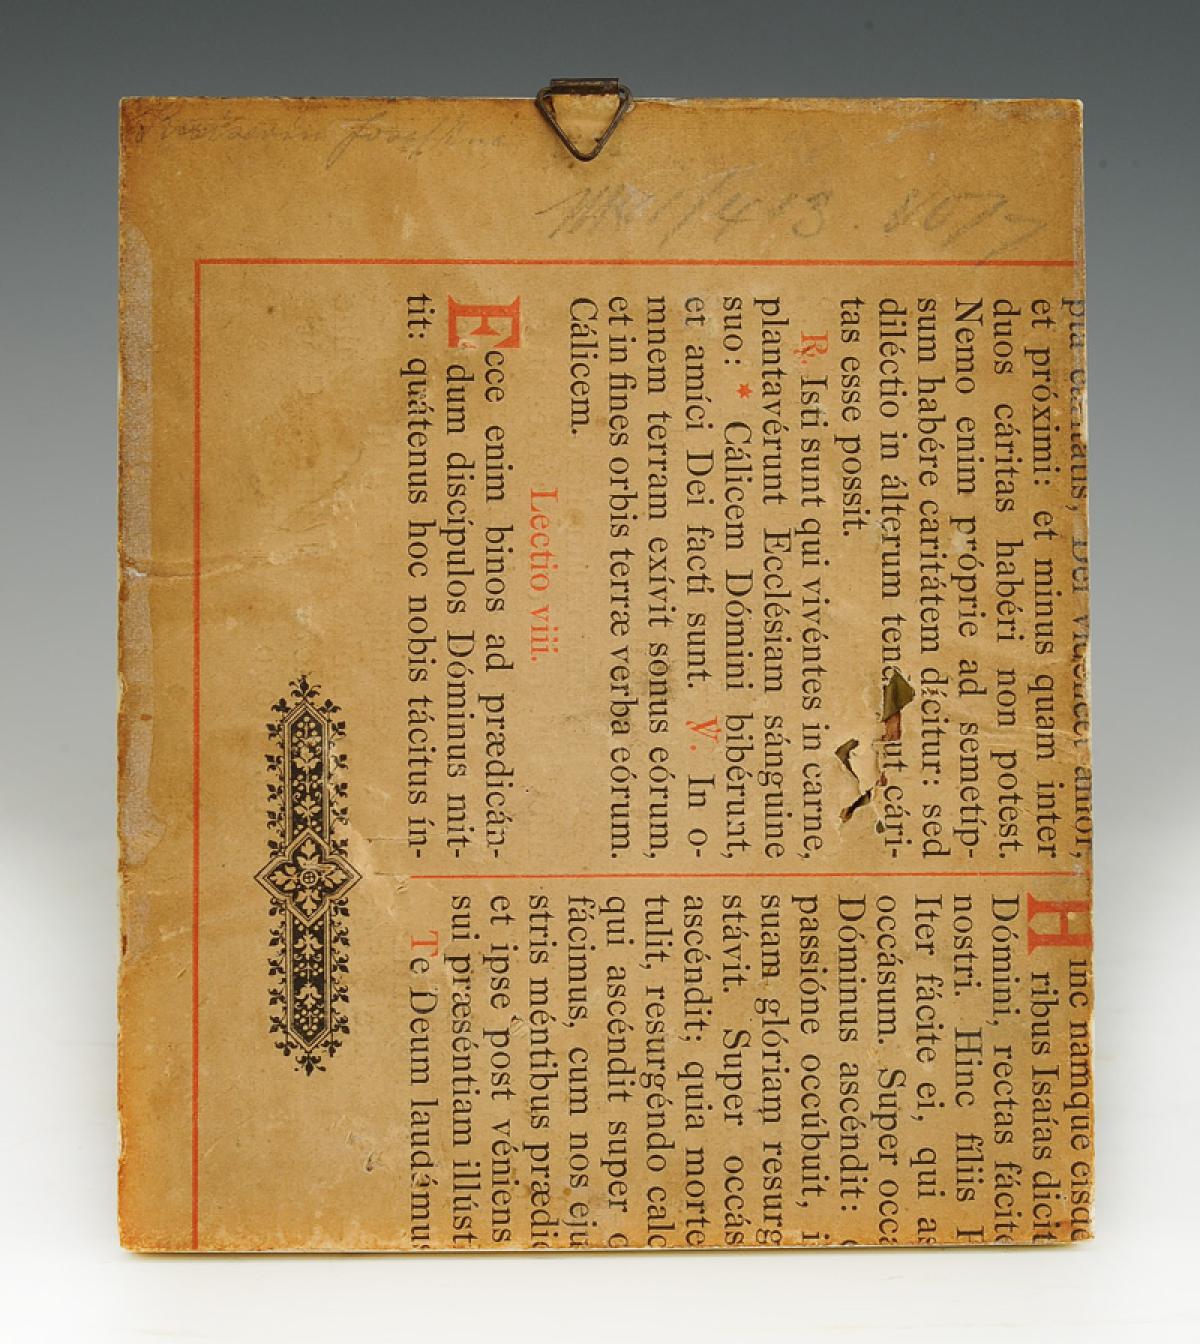 pta caritátis, Dei vidélicet amor,
et próximi: et minus quam inter
duos cáritas habéri non potest.
Nemo enim próprie ad semetíp-
sum habére caritátem dícitur: sed
diléctio in álterum tend ut cári-
tas esse possit.
℟. Isti sunt qui vivéntes in carne,
plantavérunt Ecclésiam sánguine
suo: * Cálicem Dómini bibérunt,
et amíci Dei facti sunt. ℣. In o-
mnem terram exívit sonus eórum,
et in fines orbis terræ verba eórum.
Cálicem.
Lectio viii.
Ecce enim binos ad prædicán-
dum discípulos Dóminus mit-
tit: quátenus hoc nobis tácitus ín-
Hinc namque eisdé
ribus Isaías dicit
Dómini, rectas fácite
nostri. Hinc fíliis P
Iter fácite ei, qui as
occásum. Super occa
Dóminus ascéndit: 
passióne occúbuit, i
suam glóriam resurg
stávit. Super occás
ascéndit; quia morte
tulit, resurgéndo calc
qui ascéndit super 
fácimus, cum nos eju
stris méntibus prædic
et ipse post véniens
sui præséntiam illúst
Te Deum laudámus